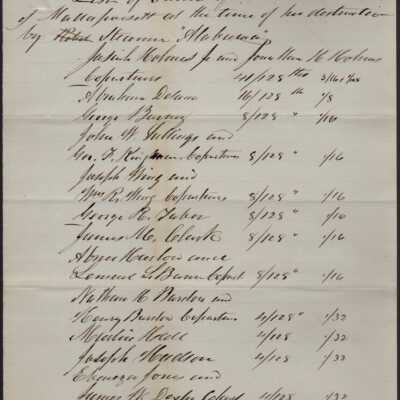 of Mattapoisett at the time of her destruction
by Rebel Steamer "Alabama"
Josiah Holmes Jr and Jonathan H Holmes
Copartners 40/128 ths
Abraham 16/128 " 1/8
George 8/128 " 1/16
John W. and
Geo. F. Kingman Copartners 8/128 " 1/16
Joseph Wing and
Wm R. Wing Copartners 8/128 " 1/16
George H. Taber 8/128 " 1/16
James M. Clark 8/128 " 1/16
Abner Harlow and
Lemuel Copart 8/128 " 1/16
Nathan H Barstow and
Henry Barstow Copartners 4/128 " 1/32
Martin Hall 4/128 1/32
Joseph Hudson 4/128 1/32
Ebenezer Jones and
James W. 4/128 1/32